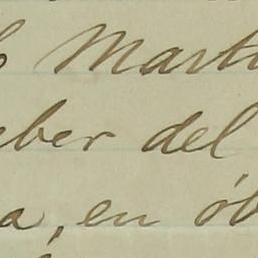 Mart
eber del
a, en øb